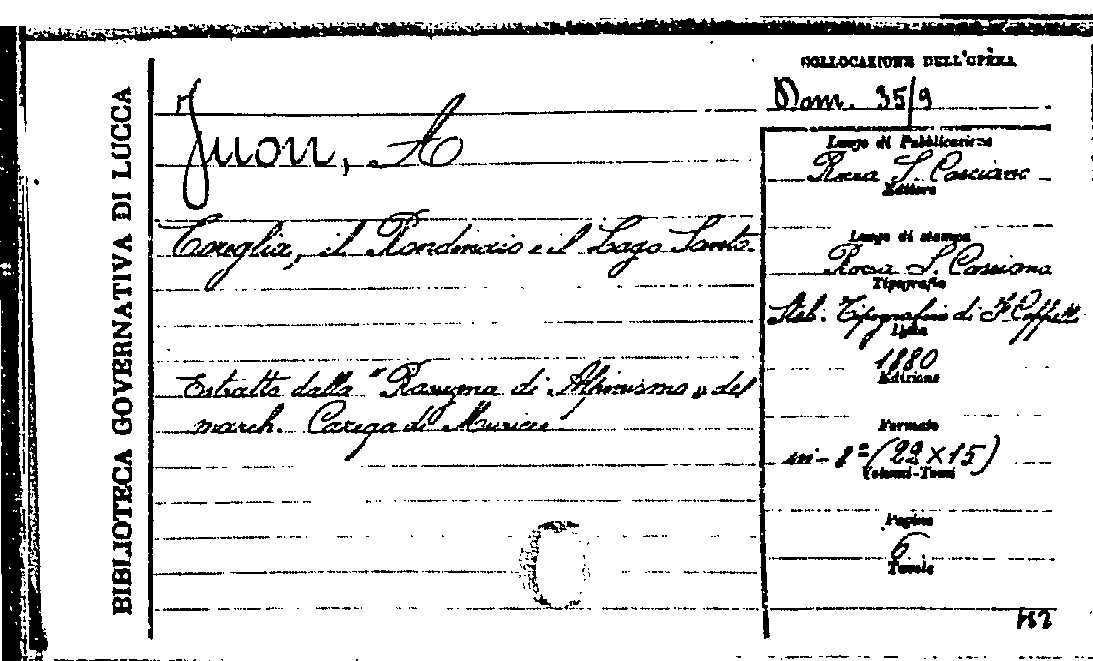 BIBLIOTECA GOVERNATIVA DI LUCCA
Juon, A
Coreglia, il Rondinaio e il Lago Santo.
Estratto dalla "Rassegna di Alpinismo" del
march. Carega di Muricce
COLLOCAZIONE DELL'OPERA
Dom. 35/9
Luogo di Pubblicazione
Rocca S. Casciano
Editore
Luogo di stampa
Rocca S. Cassiano
Tipografia
Stab. Tipografico di F. Cappelli
Data
1880
Edizione
Formato
in-8° (22×15)
Volumi-Tomi
Pagine
6
Tavole